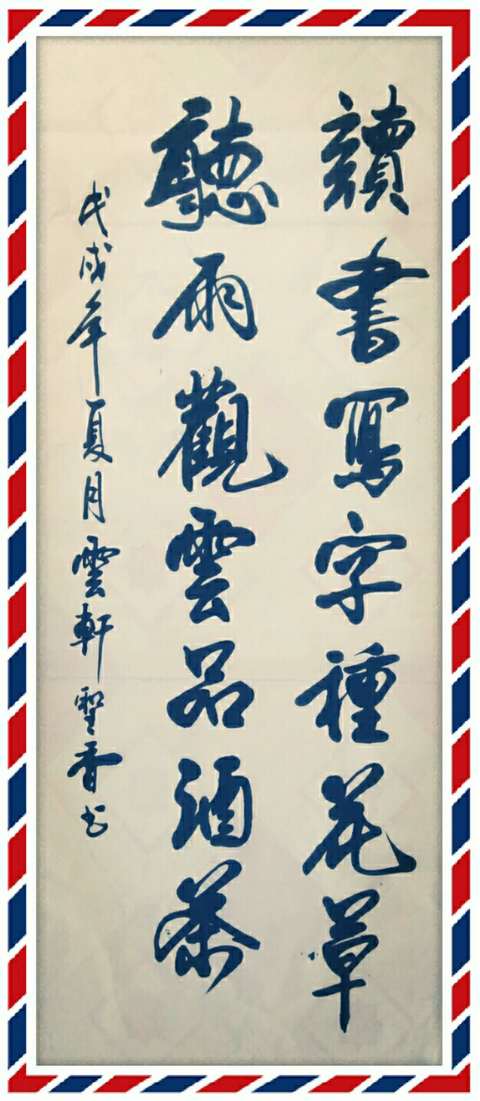 讀書寫字種花草
聽雨觀雲品酒茶
戊戌年夏月雲軒聖香书